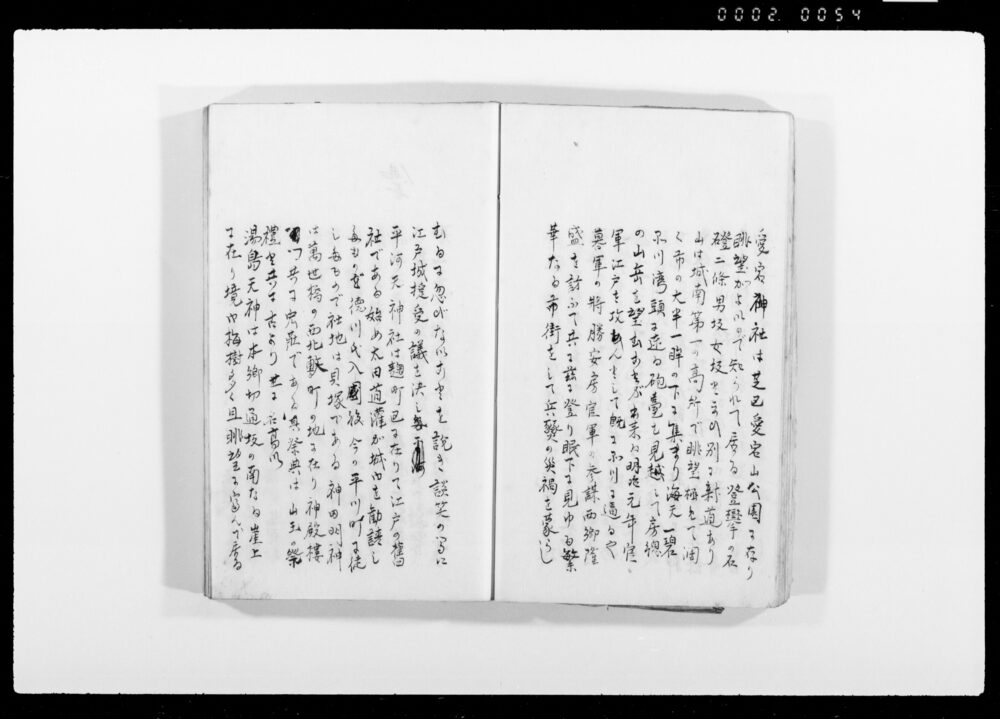 0002.0054
愛宕神社は芝区愛宕山公園に在り
眺望がよいので知られて居る登攀の石
磴二條男坂女坂と云ふ別に新道あり
山は城南第一の高所で眺望極めて濶
く市の大半一眸の下に集まり海天一碧
品川湾頭に迄る砲臺も見越して房總
の山岳を望むおとぶ出来る明治元年官
軍江戸を攻めんとして既に品川に逼るや
幕軍の将勝安房官軍の参謀西郷隆
盛を訪ふて共に茲に登り眼下に見ゆる繁
華なる市街をして兵燹の災禍を蒙らし
むるに忍びないおとを説き談笑の間に
江戸城授受の議を決した
平河天神社は麹町区に在りて江戸の舊
社である始め太田道灌が城内に勧請し
たものを徳川氏入國後今の平川町に徙
したもので社地は貝塚である神田明神
は萬世橋の西北臺町の地に在り神殿樓
門共に宏荘である其祭典は山王の祭
禮と共に古より世に名高い
湯島天神は本郷切通坂の南なる崖上
に在り境内梅樹多く且眺望に富んで居る